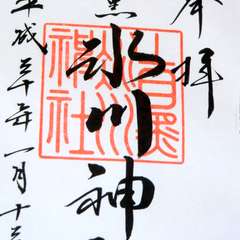 奉拝
黒氷川神
平成三十年一月十三
神社